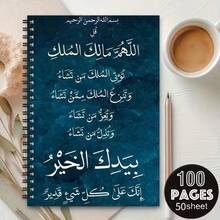 بسم الله الرحمن الرحيم
قُلِ
اللَّهُمَّ مَالِكَ المُلكِ
تُؤتِي المُلكَ مَن تَشَاءُ
وَتَنزِعُ المُلكَ مِمَّن تَشَاءُ
وَتُعِزُّ مَن تَشَاءُ
وَتُذِلُّ مَن تَشَاءُ
بِيَدِكَ الخَيْرُ
إِنَّكَ عَلَىٰ كُلِّ شَيْءٍ قَدِيرٌ
100
PAGES
50sheet